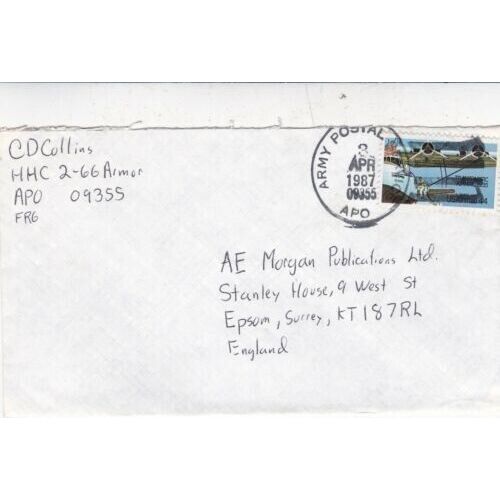 CDCollins
HHC 2-66 Armor
APO 09355
FRG
ARMY POSTAL
3
APR
1987
09355
APO
44
AE Morgan Publications Ltd.
Stanley House, 9 West St
Epsom, Surrey, KT187RL
England